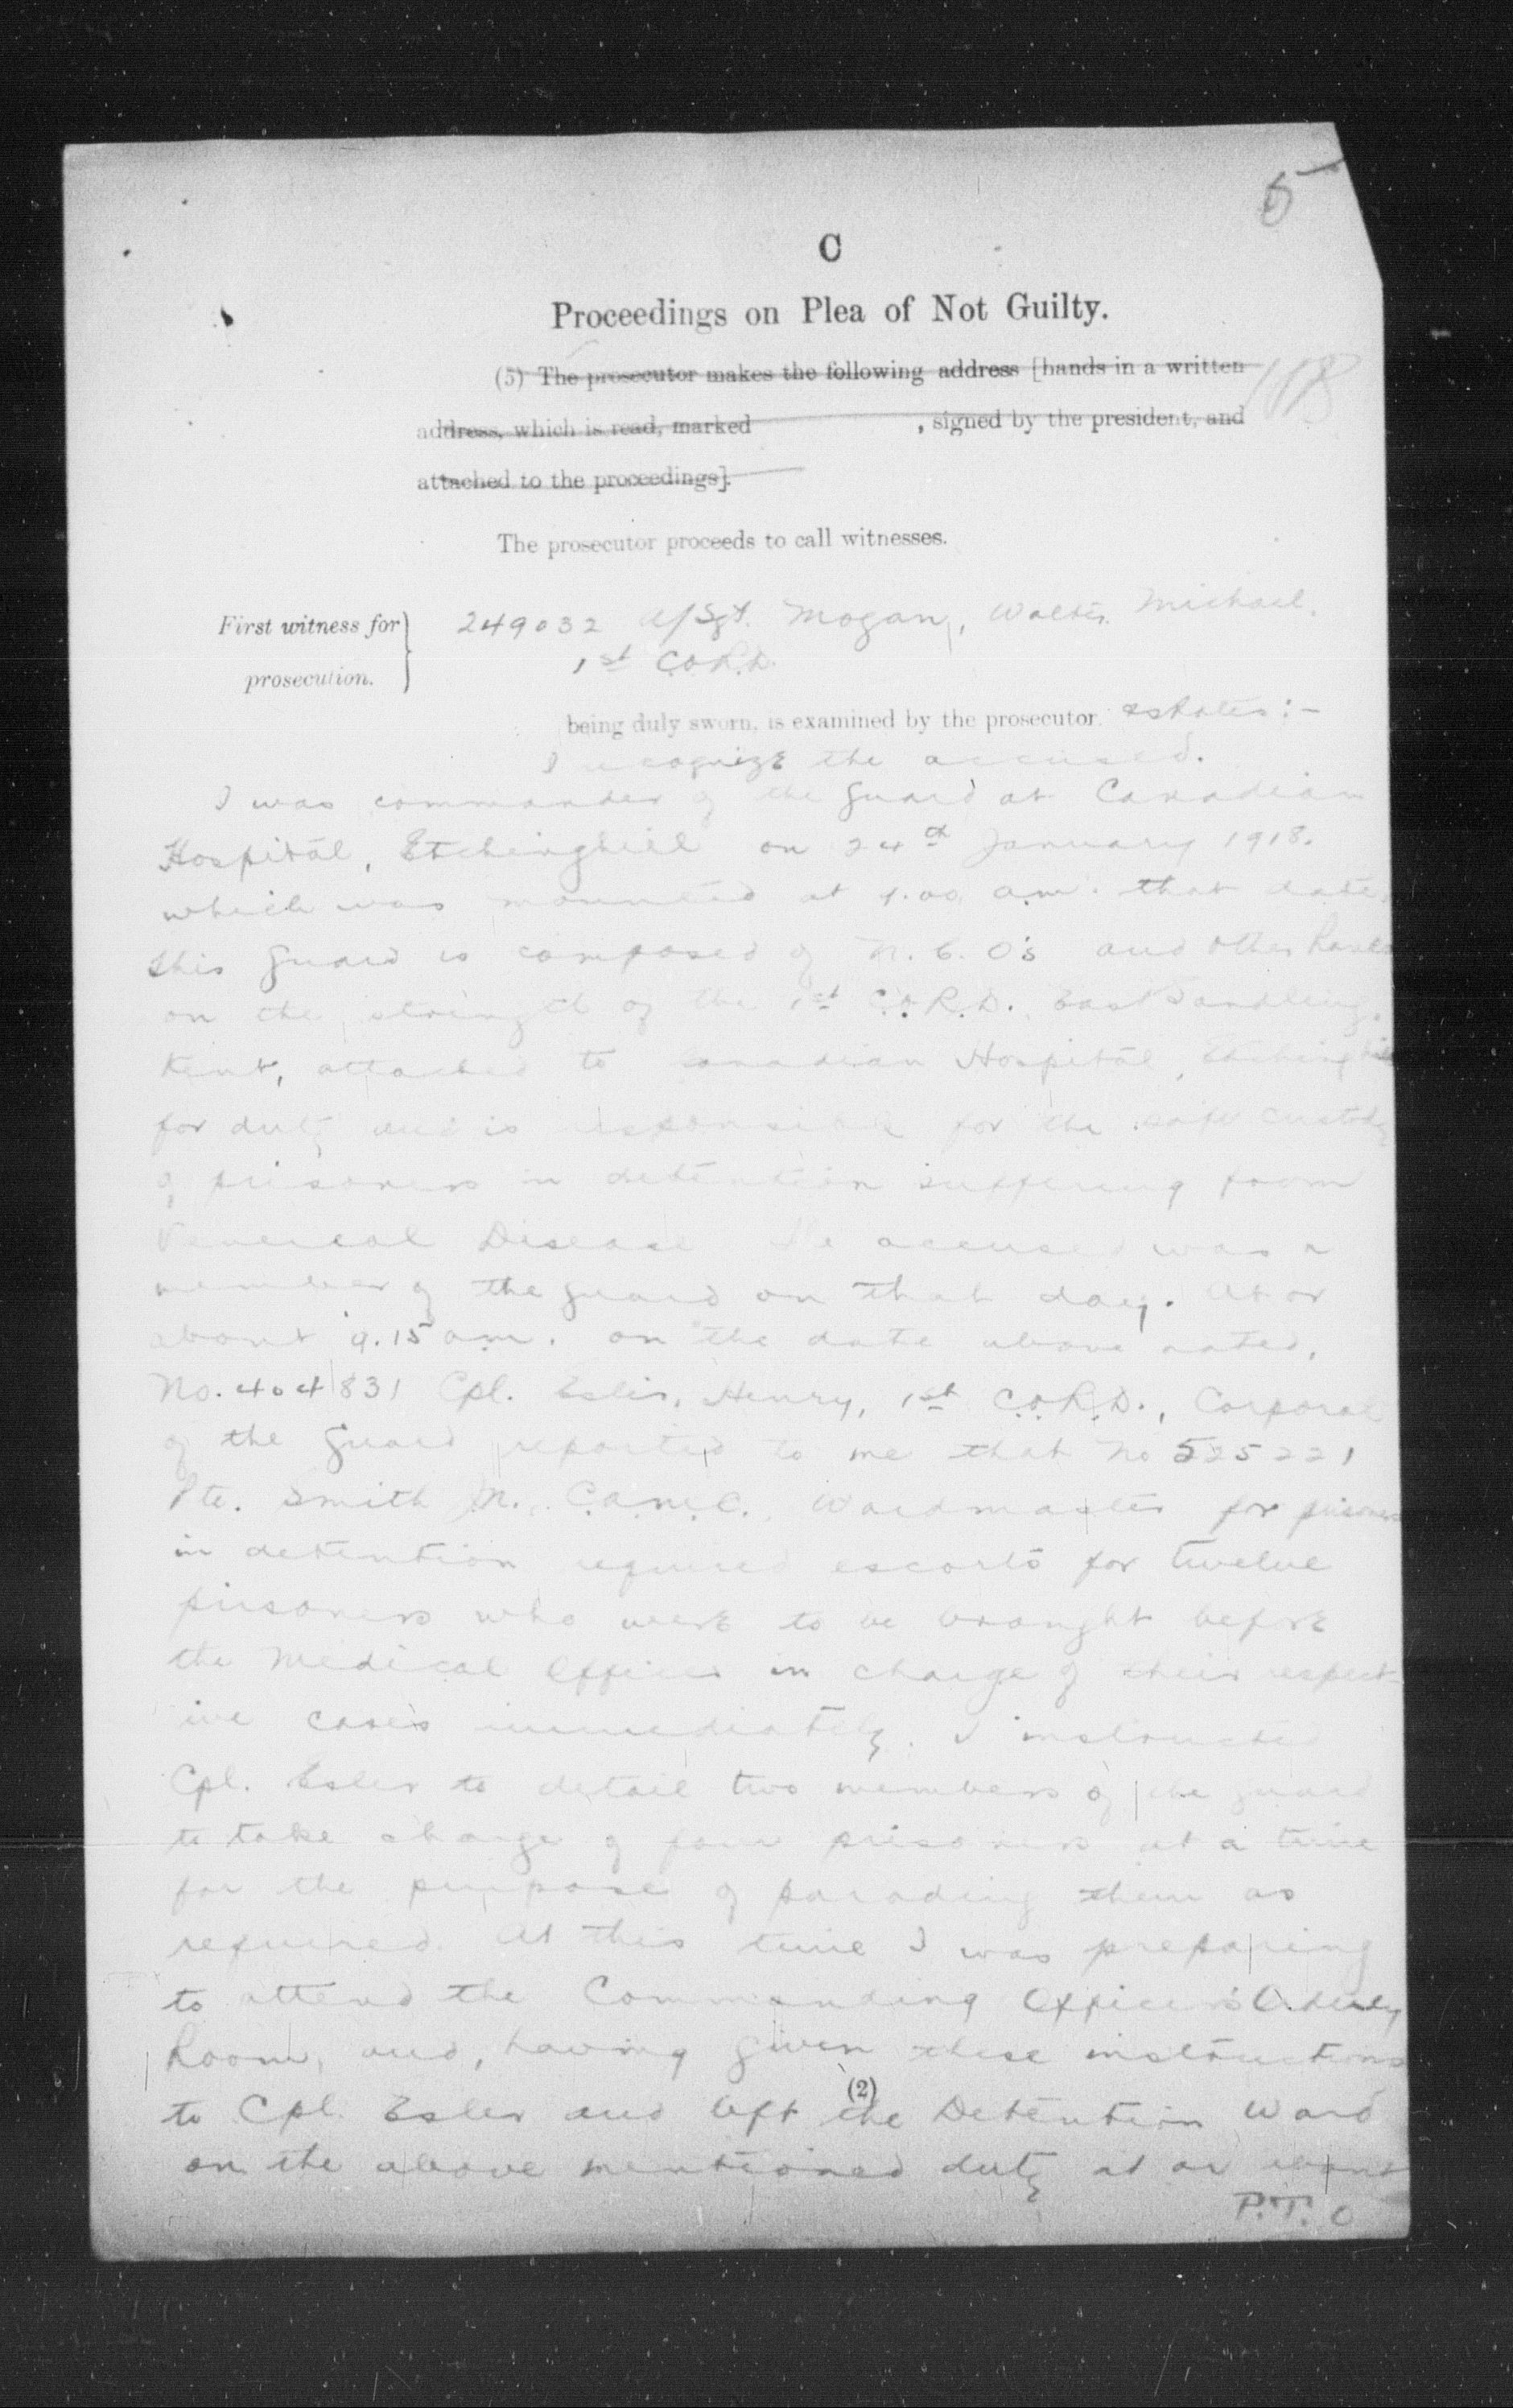 5
C
Proceedings on Plea of Not Guilty.
(5) The prosecutor makes the following address [hands in a written
118
address, which is read, marked , signed by the president, and
attached to the proceedings].
The prosecutor proceeds to call witnesses.
First witness for prosecution.
249032 A/Sgt. Mogan, Walter Michael.
1st C.O.R.D.
being duly sworn, is examined by the prosecutor & states :-
I recognize the accused.
I was commander of the guard at Canadian
Hospital, Etchinghill on 24th January 1918.
which was mounted at a.m. that date.
this guard is composed of N.C.O's and other Ranks
on the strength of the 1st C.O.R.D. East Sandling.
Kent, attached to Canadian Hospital, Etchinghill
for duty and is responsible for the safe custody
of prisoners in detention suffering from
Venereal Disease The accused was a
member of the guard on that day. At or
about 9.15 a.m. on the date above noted,
No. 404831 Cpl. Esler, Henry, 1st C.O.R.D., Corporal
of the guard reported to me that No 525221
Pte. Smith N. C.A.M.C. Wardmaster for prisoners
in detention required escorts for twelve
prisoners who were to be brought before
the Medical Officer in charge of their respect-
ive cases immediately. I instructed
Cpl. Esler to detail two members of the guard
to take charge of four prisoners at a time
for the purpose of parading them as
required. At this time I was preparing
to attend the Commanding Officer's Orderly
Room, and, having given these instructions
(2)
to Cpl. Esler and left the Detention Ward
on the above mentioned duty at or about
P.T.O